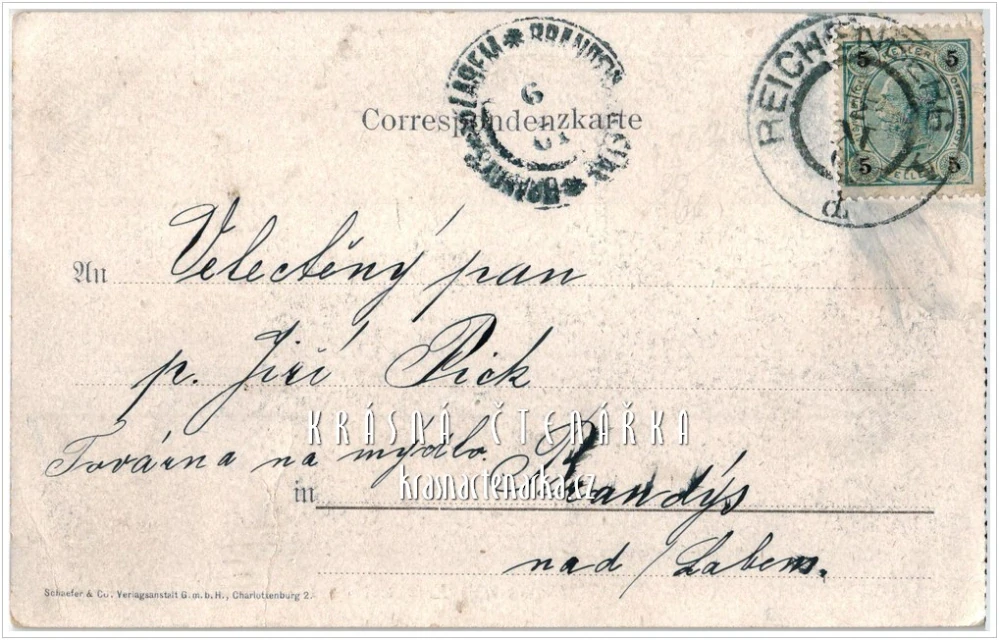 Correspondenzkarte
REICHENBERG
5 5
5 5
An Velectěný pan
p. Jiří Pick
KRÁSNÁ ČTENÁŘKA
Továrna na mýdlo.
krasnactenarka.cz
in Brandýs
nad Labem.
Schaefer & Co. Verlagsanstalt G. m. b. H., Charlottenburg 2.